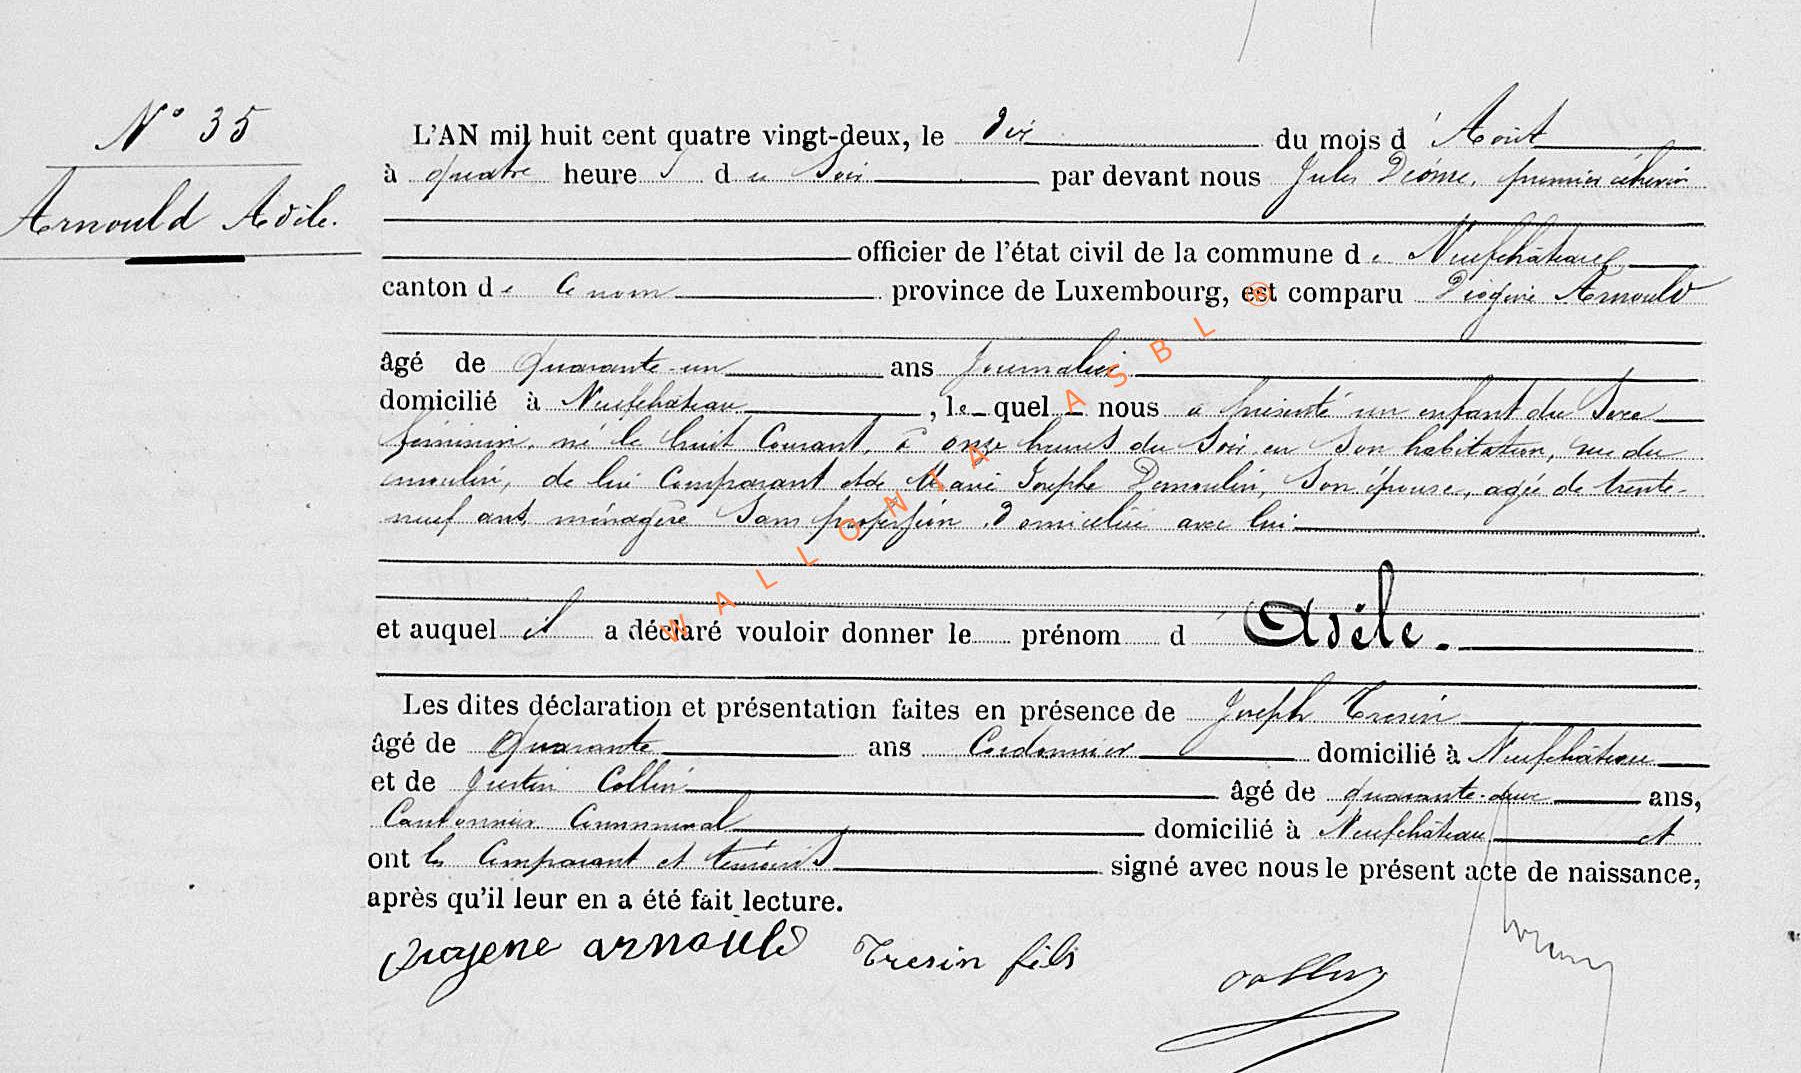 N° 35
Arnould Adèle.
L'AN mil huit cent quatre vingt-deux, le dix du mois d'Août
à quatre heures du Soir par devant nous Jules Diôme, premier échevin
officier de l'état civil de la commune de Neufchâteau
canton de Ce nom province de Luxembourg, est comparu Diogène Arnould
âgé de quarante-un ans Journalier
domicilié à Neufchâteau, lequel nous a présenté un enfant du Sexe
féminin, né le huit Courant, à onze heures du Soir en Son habitation, rue du
moulin, de lui Comparant et de Marie Josephe Demoulin, Son épouse, agée de trente-
neuf ans, ménagère Sans profession, domiciliée avec lui
et auquel il a déclaré vouloir donner le prénom d'Adèle.
Les dites déclaration et présentation faites en présence de Joseph Tresin
âgé de Quarante ans Cordonnier domicilié à Neufchâteau
et de Justin Collin âgé de quarante-deux ans,
Cantonnier Communal domicilié à Neufchâteau et
ont les Comparant et témoins signé avec nous le présent acte de naissance,
après qu'il leur en a été fait lecture.
Diogene arnould Tresin fils Collin
WALLONIA ASBL ®